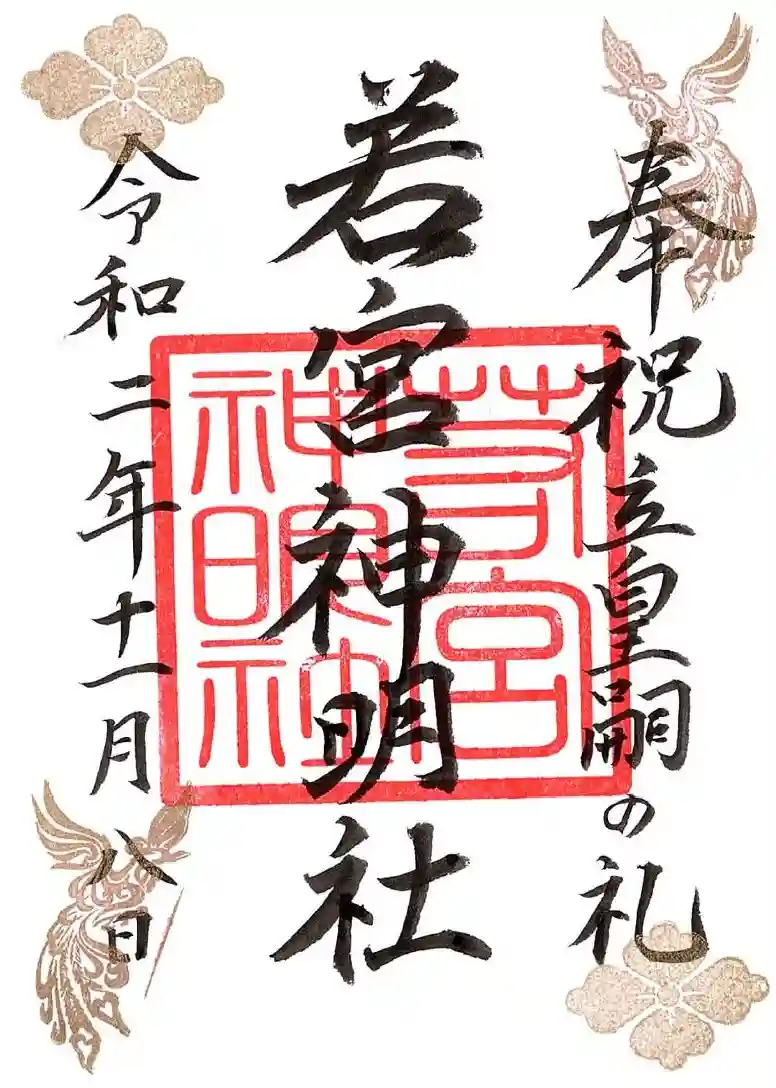 奉祝立皇嗣の礼
若宮神明社
令和二年十一月八日
若宮
神明社